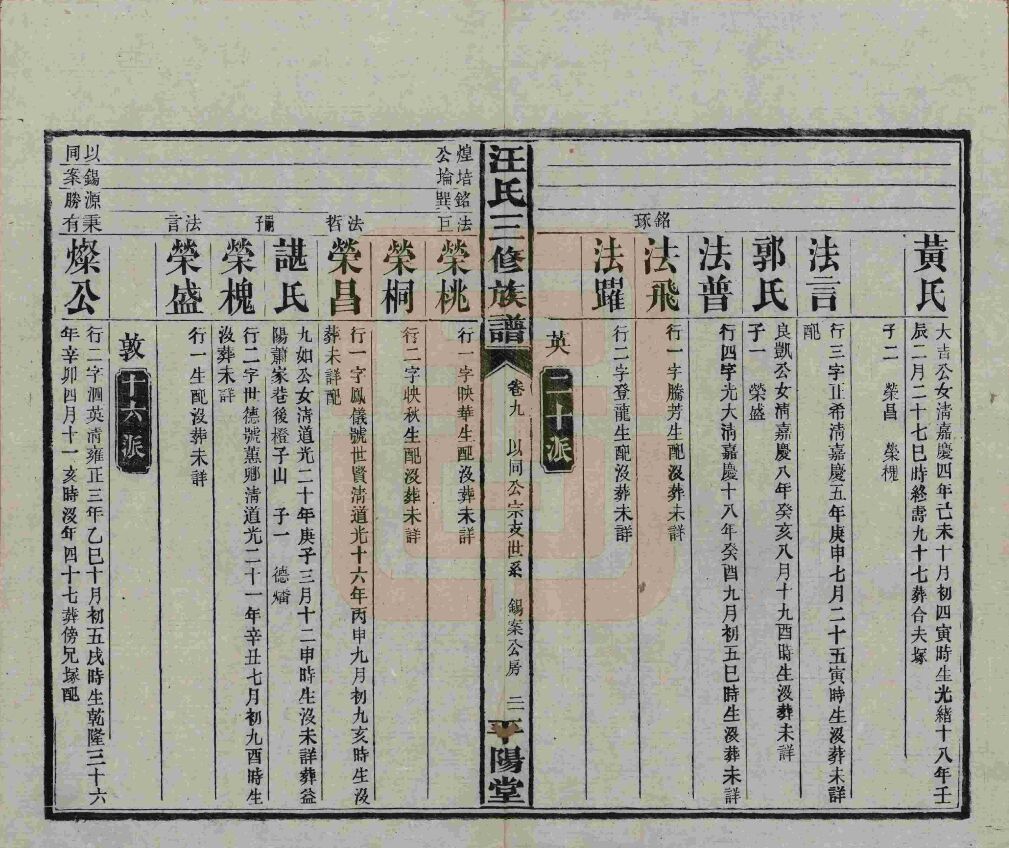 黃氏
大吉公女淸嘉慶四年己未十月初四寅時生光緒十八年壬
辰二月二十七巳時終壽九十七葬合夫塚
子二 榮昌 榮槐
法言
行三字正希淸嘉慶五年庚申七月二十五寅時生沒葬未詳
配
郭氏
良凱公女淸嘉慶八年癸亥八月十九酉時生沒葬未詳
子一 榮盛
法普
行四字光大淸嘉慶十八年癸酉九月初五巳時生沒葬未詳
銘琢
法飛
行一字騰芳生配沒葬未詳
法躍
行二字登龍生配沒葬未詳
英 二十派
汪氏三修族譜
卷九 以同公宗支世系 錫案公房 二
平陽堂
煌培銘法
公埨巽巨
榮桃
行一字映華生配沒葬未詳
榮桐
行二字映秋生配沒葬未詳
法哲
榮昌
行一字鳳儀號世賢淸道光十六年丙申九月初九亥時生沒
葬未詳配
嗣子
諶氏
九如公女淸道光二十年庚子三月十二申時生沒未詳葬益
陽蕭家巷後橙子山 子一 德燔
榮槐
行二字世德號蕉鄉淸道光二十一年辛丑七月初九酉時生
沒葬未詳
法言
榮盛
行一生配沒葬未詳
敦 十六派
以錫源秉
同案勝有
燦公
行二字泗英淸雍正三年乙巳十月初五戌時生乾隆三十六
年辛卯四月十一亥時沒年四十七葬傍兄塚配